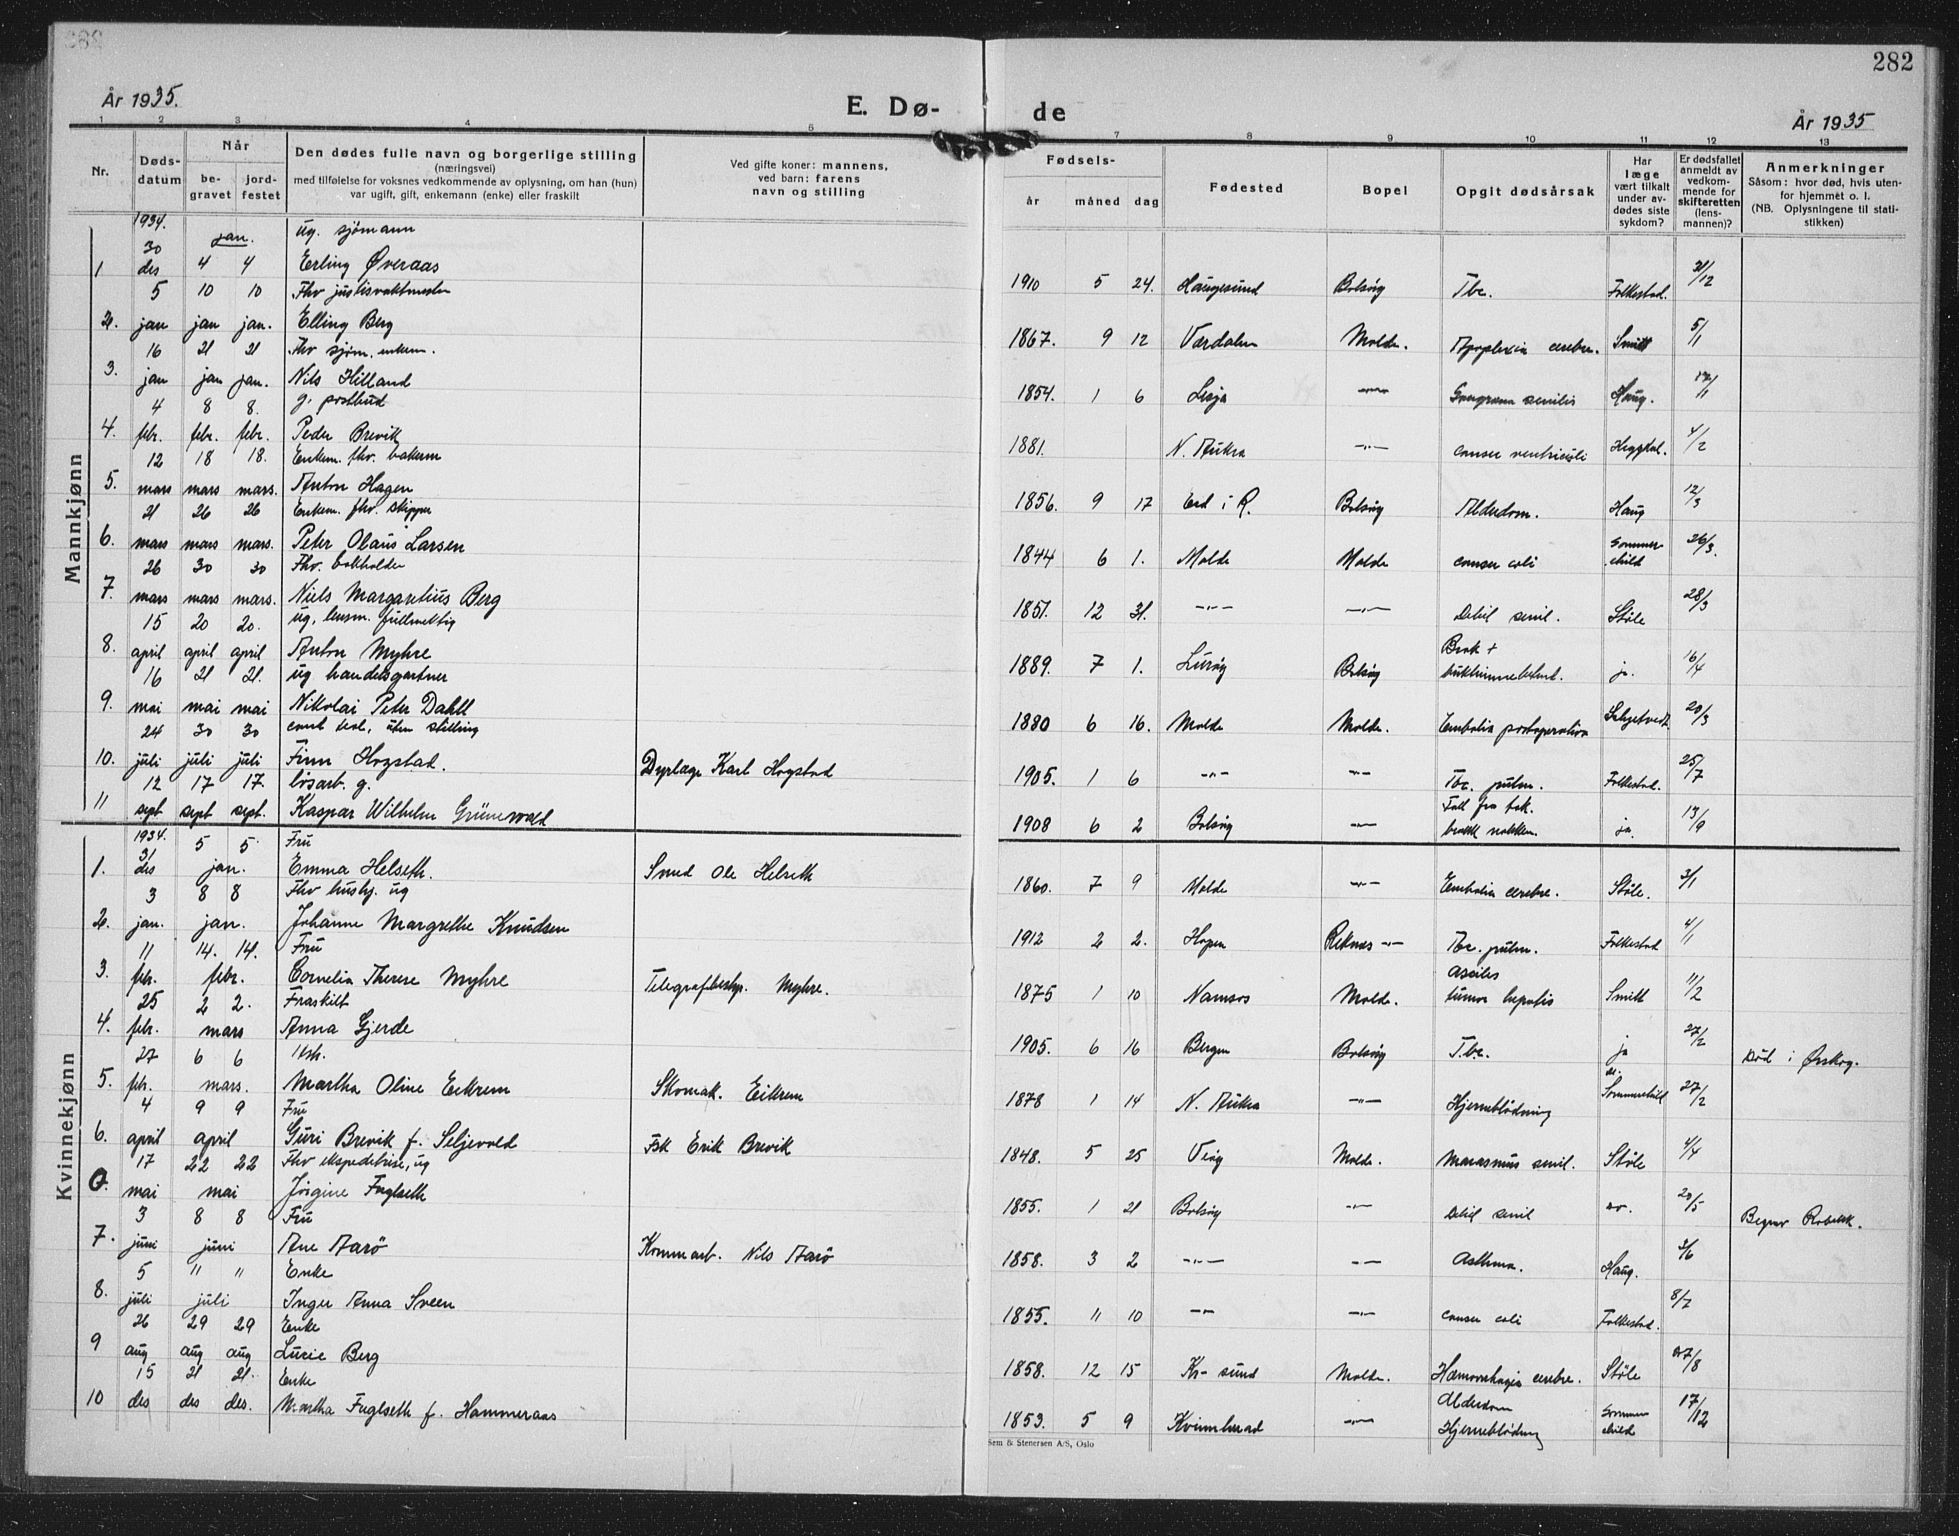 282
År 1935.
E. Dø-
de
År 1935
1 2 3 4 5 6 7 8 9 10 11 12 13
Nr.
Døds-
datum
Når
be-
gravet
jord-
festet
Den dødes fulle navn og borgerlige stilling
(næringsvei)
med tilføielse for voksnes vedkommende av oplysning, om han (hun)
var ugift, gift, enkemann (enke) eller fraskilt
Ved gifte koner: mannens,
ved barn: farens
navn og stilling
Fødsels-
år måned dag
Fødested
Bopel
Opgit dødsårsak
Har
læge
vært tilkalt
under av-
dødes siste
sykdom?
Er dødsfallet
anmeldt av
vedkom-
mende for
skifteretten
(lens-
mannen)?
Anmerkninger
Såsom: hvor død, hvis uten-
for hjemmet o. l.
(NB. Oplysningene til stati-
stikken)
Mannkjønn
1934. ug. sjømann
30 jan.
1 des 4 4 Erling Øveraas 1910 5 24. Haugesund Bolsøy Tbc. Folkestad. 31/12
5 10 10 Fhv justisvaktmester
2. jan jan jan. Elling Berg 1867. 9 12 Værdalen Molde. Apoplexia cerebr. Smitt 5/1
16 21 21 Fhv sjøm. enkem.
3. jan jan jan. Nils Hilland 1854. 1 6 Lesja -"- senilis Haug. 17/1
4 8 8. g. postbud
4. febr. febr. febr. Peder Brevik 1881. N. Aukra -"- cancer ventriculi Heggdal. 4/2
12 18 18. Enkem. fhv. bakerm
5. mars mars mars. Anton Hagen 1856. 9 17 Eid i R. Bolsøy Alderdom. Haug 12/3
21 26 26 Enkem. fhv. skipper
6. mars mars mars. Peter Olaus Larsen 1844 6 1. Molde Molde cancer coli Sommerschild 26/3.
26 30 30 Fhv. bokholder
7. mars mars mars. Niels Margaretius Berg 1851. 12 31. -"- -"- Debil senil. Støle 28/3
15 20 20. ug, lensm. fullmektig
8. april april april Anton Myhre 1889. 7 1. Lurøy Bolsøy Brok + bukhinnebetent. ja. 16/4
16 21 21. ug handelsgartner
9. mai mai mai Nikolai Peter Dahll 1880 6 16. Molde Molde. Embolia postoperativa 20/3
24 30 30 cand. uten stilling
10. juli juli juli Finn Hogstad. Dyrlæge Karl Hogstad 1905. 1 6 -"- -"- Tbc. pulm. Folkestad. 25/7
12 17 17. løsarb. g.
11 sept sept sept. Kaspar Wilhelm Grünewald 1908 6 2 Bolsøy -"- Fall fra tak. brækk nakken. ja. 13/9
Kvinnekjønn
1934. 5 5 Fru
31
1. des jan. Emma Helseth. Smed Ole Helseth 1860. 7 9 Molde -"- Embolia cerebr. Støle. 3/1
3 8 8 Fhv hushj. ug
2. jan. jan. Johanne Margrethe Knudsen 1912 2 2. Hopen Reknes -"- Tbc. pulm. Folkestad 4/1
11 14. 14. Fru
3. febr. febr. Cornelia Therese Myhre Telegrafbestyr. Myhre. 1875 1 10 Namsos Molde. Ascites tumor hepatis Smitt 11/2
25 2 2. Fraskilt
4. febr. mars Anna Gjerde 1905. 6 16 Bergen Bolsøy Tbc. ja 27/2 Død i Ørskog.
27 6 6
5. febr. mars. Martha Oline Eikrem Skomak. Eikrem 1878 1 14 N. Aukra -"- Hjerneblödning Sommerschild 27/2
4 9 9 Fru
6. april april Guri Brevik f. Seljevold Fsk Erik Brevik 1848. 5 25 Veøy Molde. Marasmus senil. Støle 4/4
17 22 22 Fhv ekspeditrise, ug
0. mai mai Jørgine Fuglseth 1855. 1 21 Bolsøy -"- Debil senil 20/5 Begrav Røbekk.
3 8 8 Fru
7. juni juni Ane Aarö Kommarb. Nils Aarö 1858. 3 2 -"- -"- Asthma. Haug. 3/6
5 " " Enke
8. juli juli Inger Anna Sveen 1855. 11 10 -"- -"- cancer coli Folkestad. 8/7
26 29 29 Enke
9 aug aug aug Lucie Berg 1858. 12 15 Kr-sund Molde. Hæmorrhagia cerebr. Støle 27/8
15 21 21. Enke
10 des des des. Martha Fuglseth f. Hammeraas 1853. 5 9 Kvinnherad -"- Alderdom Hjerneblödning Sommerschild 17/12
Sem & Stenersen A/S, Oslo